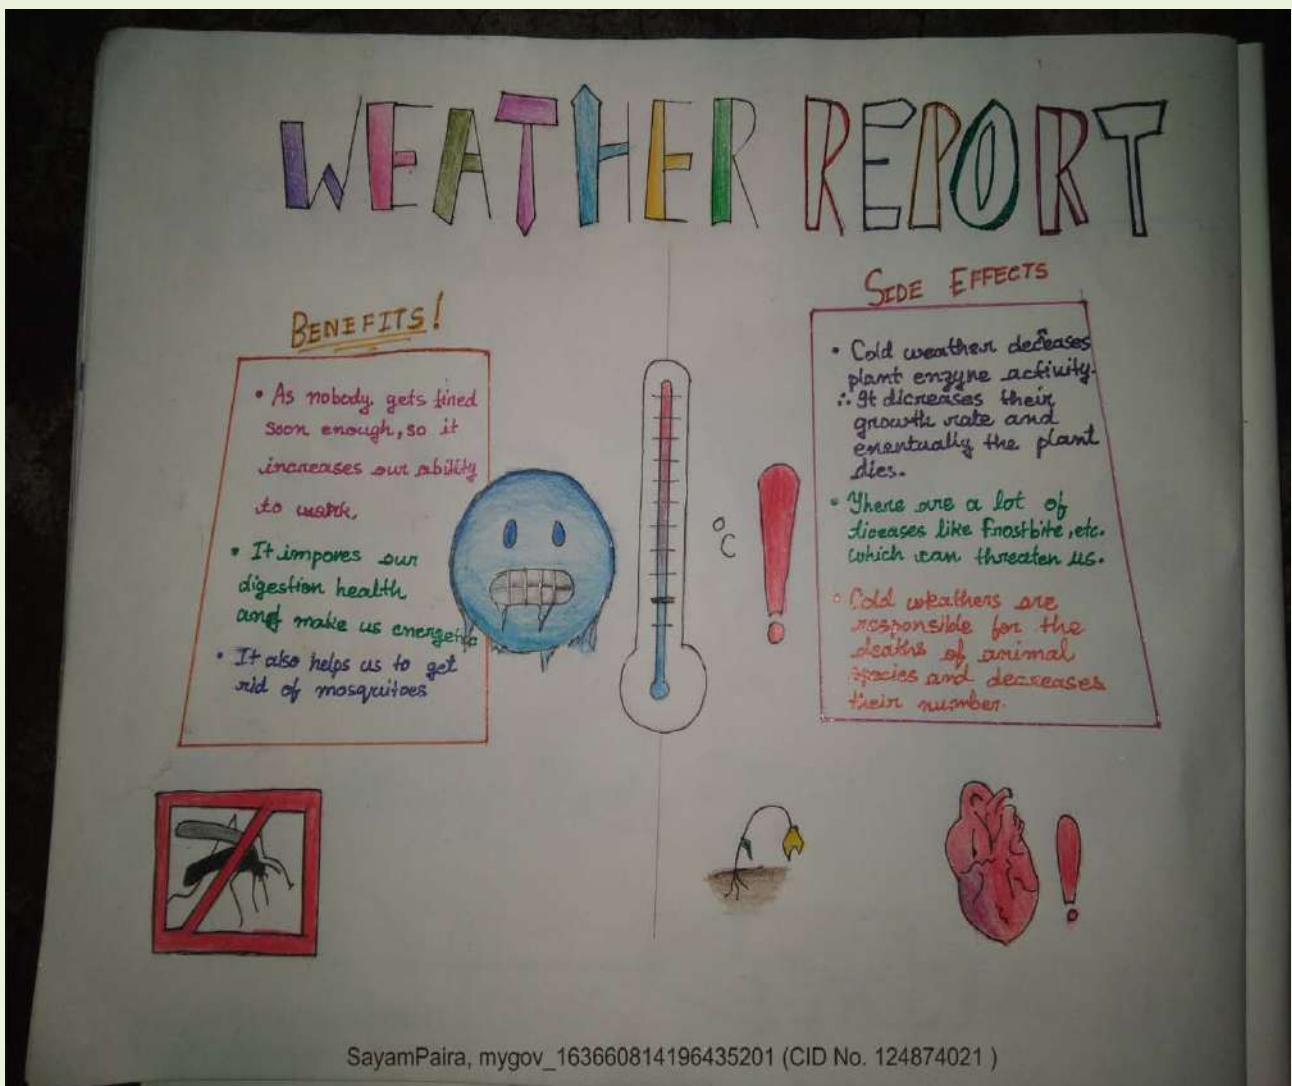 WEATHER REPORT
BENEFITS!
• As nobody gets tired
soon enough, so it
increases our ability
to work.
• It impoves our
digestion health
and make us energetic
• It also helps us to get
rid of mosquitoes
°C
SIDE EFFECTS
• Cold weather deceases
plant enzyne activity.
∴ It dicreases their
growth rate and
enentually the plant
dies.
• There are a lot of
diceases like Frostbite, etc.
which can threaten us.
• Cold weathers are
responsible for the
deaths of animal
species and decreases
their number.
SayamPaira, mygov_163660814196435201 (CID No. 124874021 )